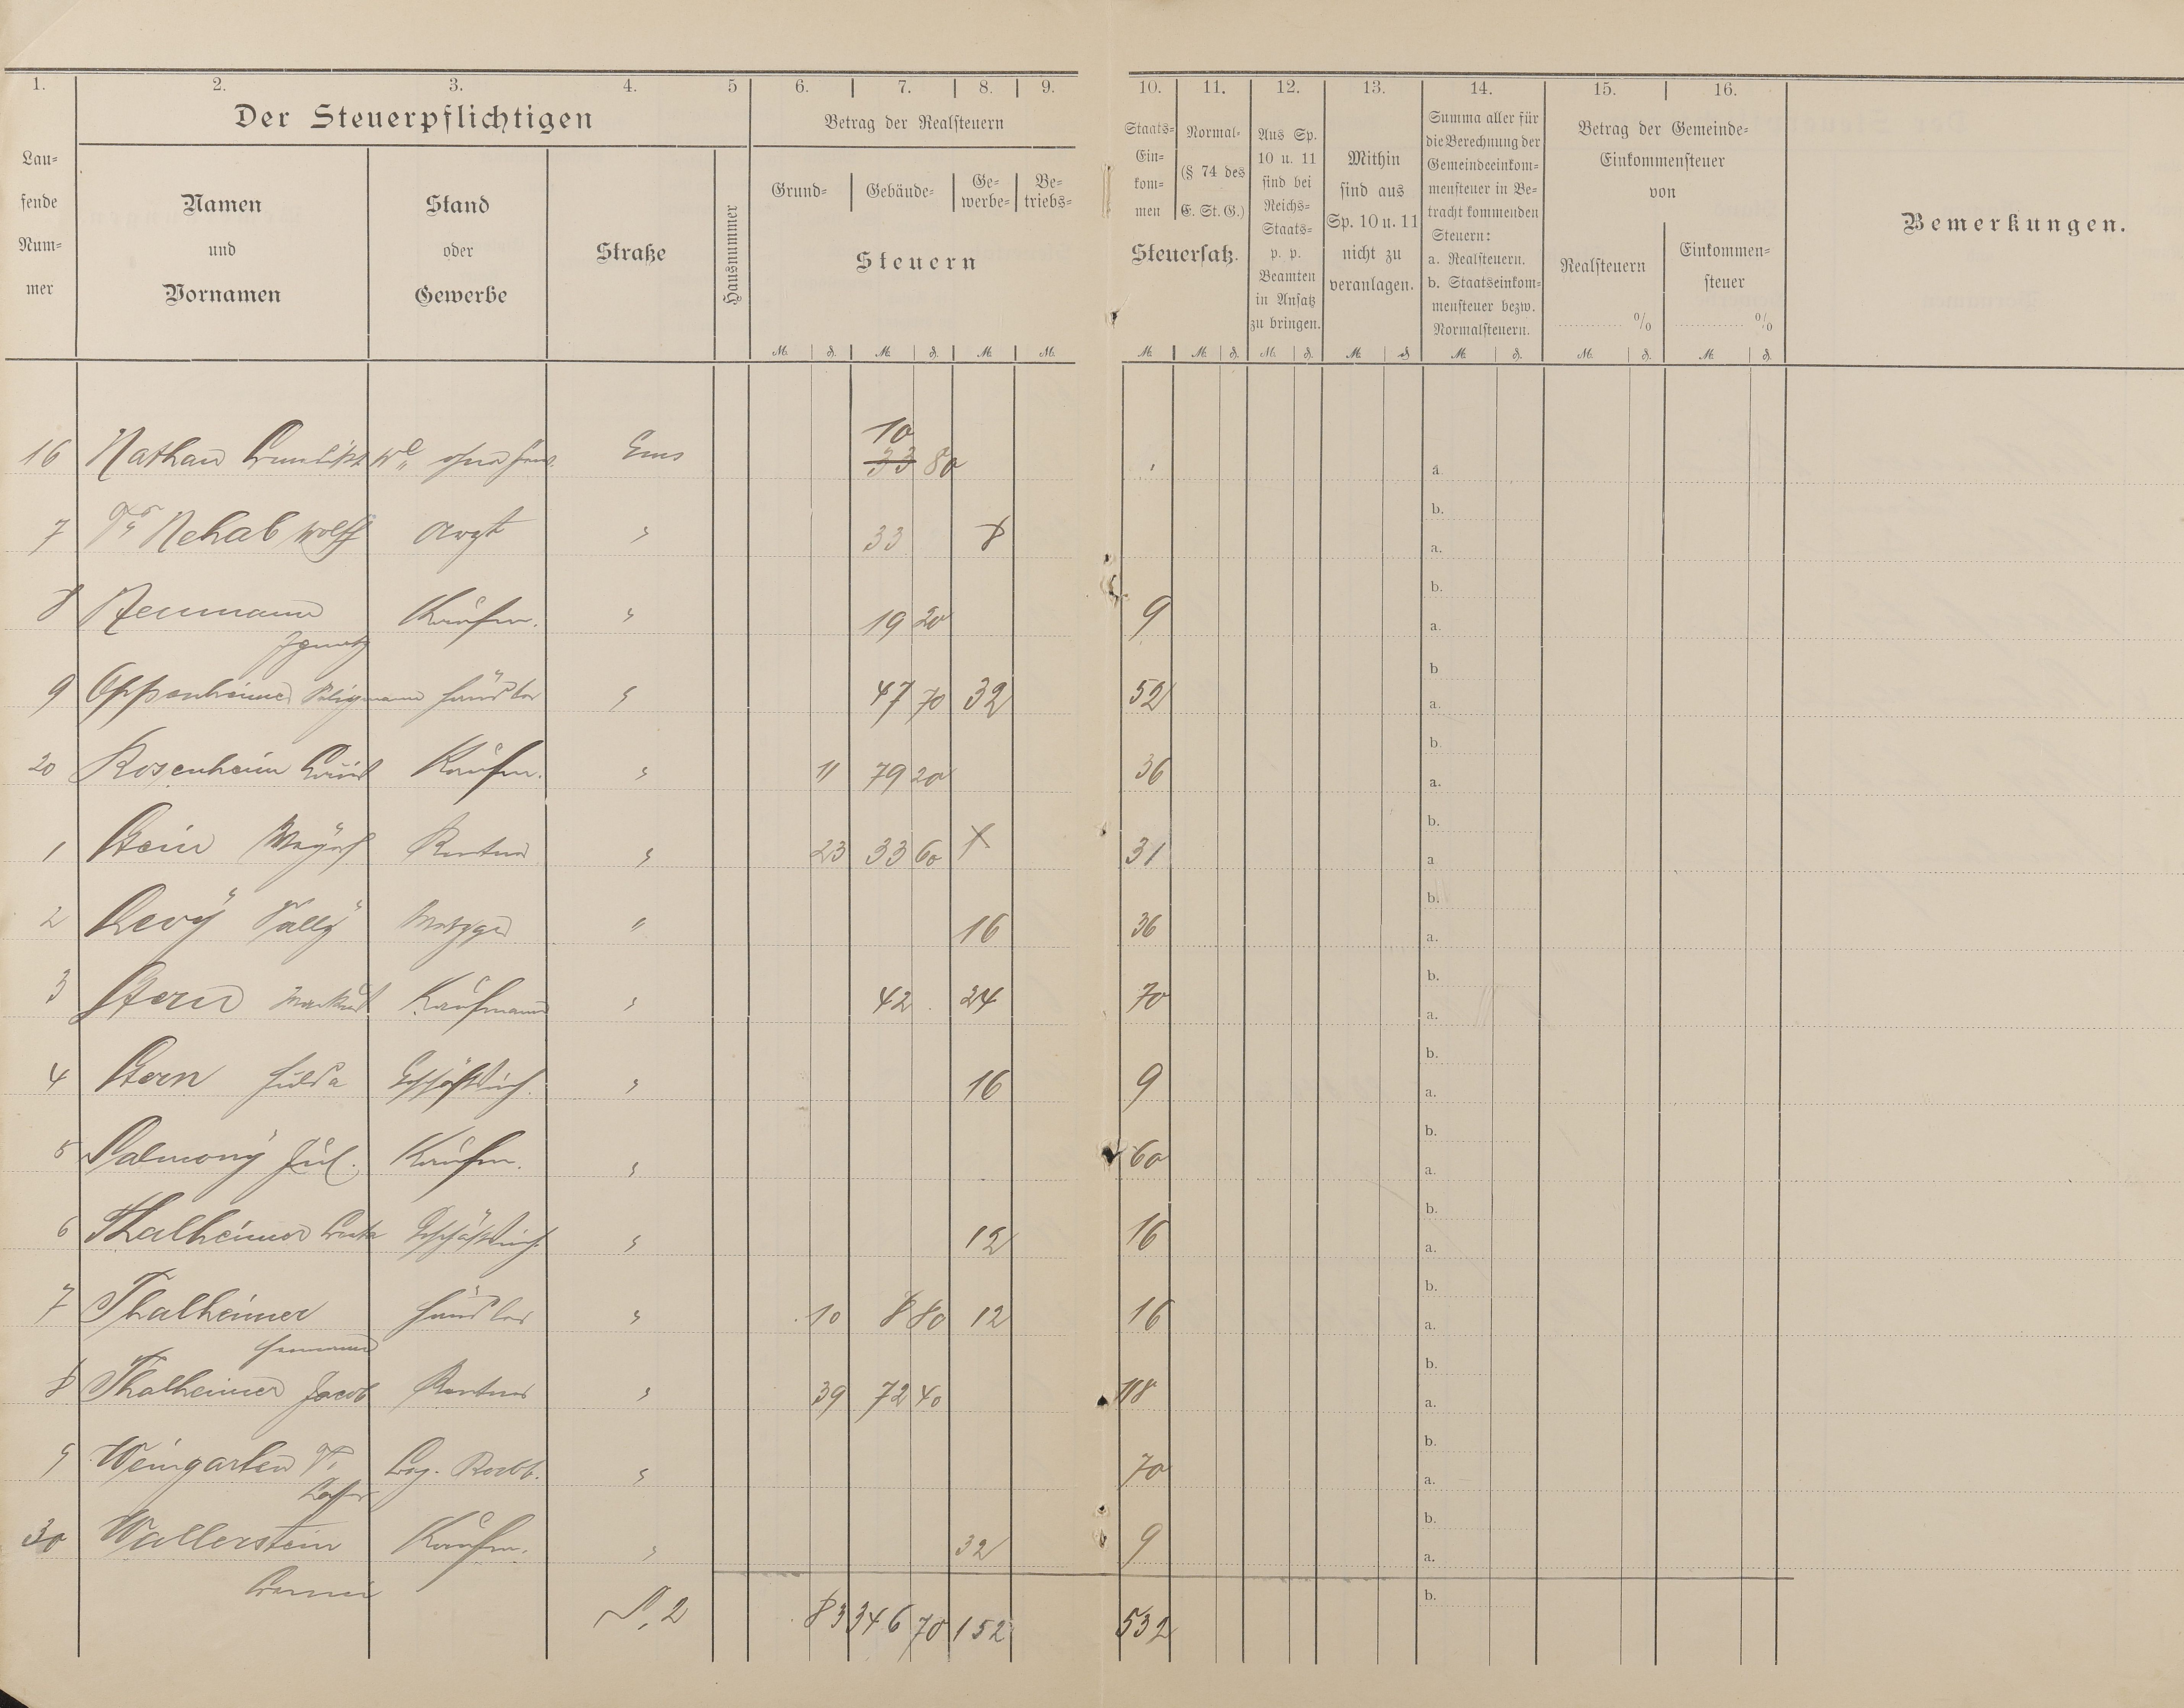 1. 2. 3. 4. 5 6. 7. 8. 9. 10. 11. 12. 13. 14. 15. 16.
Der Steuerpflichtigen
Betrag der Realsteuern
Lau-
fende
Num-
mer
Namen
und
Vornamen
Stand
oder
Gewerbe
Straße
Hausnummer
Grund- Gebäude- Ge-
werbe- Be-
triebs-
Steuern
Staats-
Ein-
kom-
men
Normal-
(§ 74 des
E. St. G.)
Steuersatz.
Aus Sp.
10 u. 11
sind bei
Reichs-
Staats-
p. p.
Beamten
in Ansatz
zu bringen.
Mithin
sind aus
Sp. 10 u. 11
nicht zu
veranlagen.
Summa aller für
die Berechnung der
Gemeindeeinkom-
mensteuer in Be-
tracht kommenden
Steuern:
a. Realsteuern.
b. Staatseinkom-
mensteuer bezw.
Normalsteuern.
Betrag der Gemeinde-
Einkommensteuer
von
Realsteuern
%
Einkommen-
steuer
%
Bemerkungen.
M. ₰. M. ₰. M. M. M. M. ₰. M. ₰. M. ₰ M. ₰. M. ₰. M. ₰.
10
16 Nathan Wwe ohne Ems 33 80 a.
b.
7 Dr Nehab Wolff Arzt " 33 8 a.
b.
8 Neumann Kaufm. " 19 20 9 a.
Ignatz
b
9 Oppenheimer Seligmann Händler " 47 70 32 52 a.
b.
20 Rosenheim Louis Kaufm. " 11 79 20 36 a.
b.
1 Stein Rentner " 23 33 60 31 a
b.
2 Levÿ Sallÿ Metzger " 16 36 a.
b.
3 Stern Markus Kaufmann " 42 . 24 70 a.
b.
4 Stern Hulda " 16 9 a.
b.
5 Salmonÿ Jul. Kaufm. " 60 a.
b.
6 Thalheimer " 12 16 a.
b.
7 Thalheimer Händler " 10 8 80 12 16 a.
Hermann
b.
8 Thalheimer Jacob Rentner " 39 72 40 118 a.
b.
9 Weingarten Dr " 70 a.
b.
30 Wallerstein Kaufm. " 32 9 a.
b.
S. 2 83 346 70 152 532